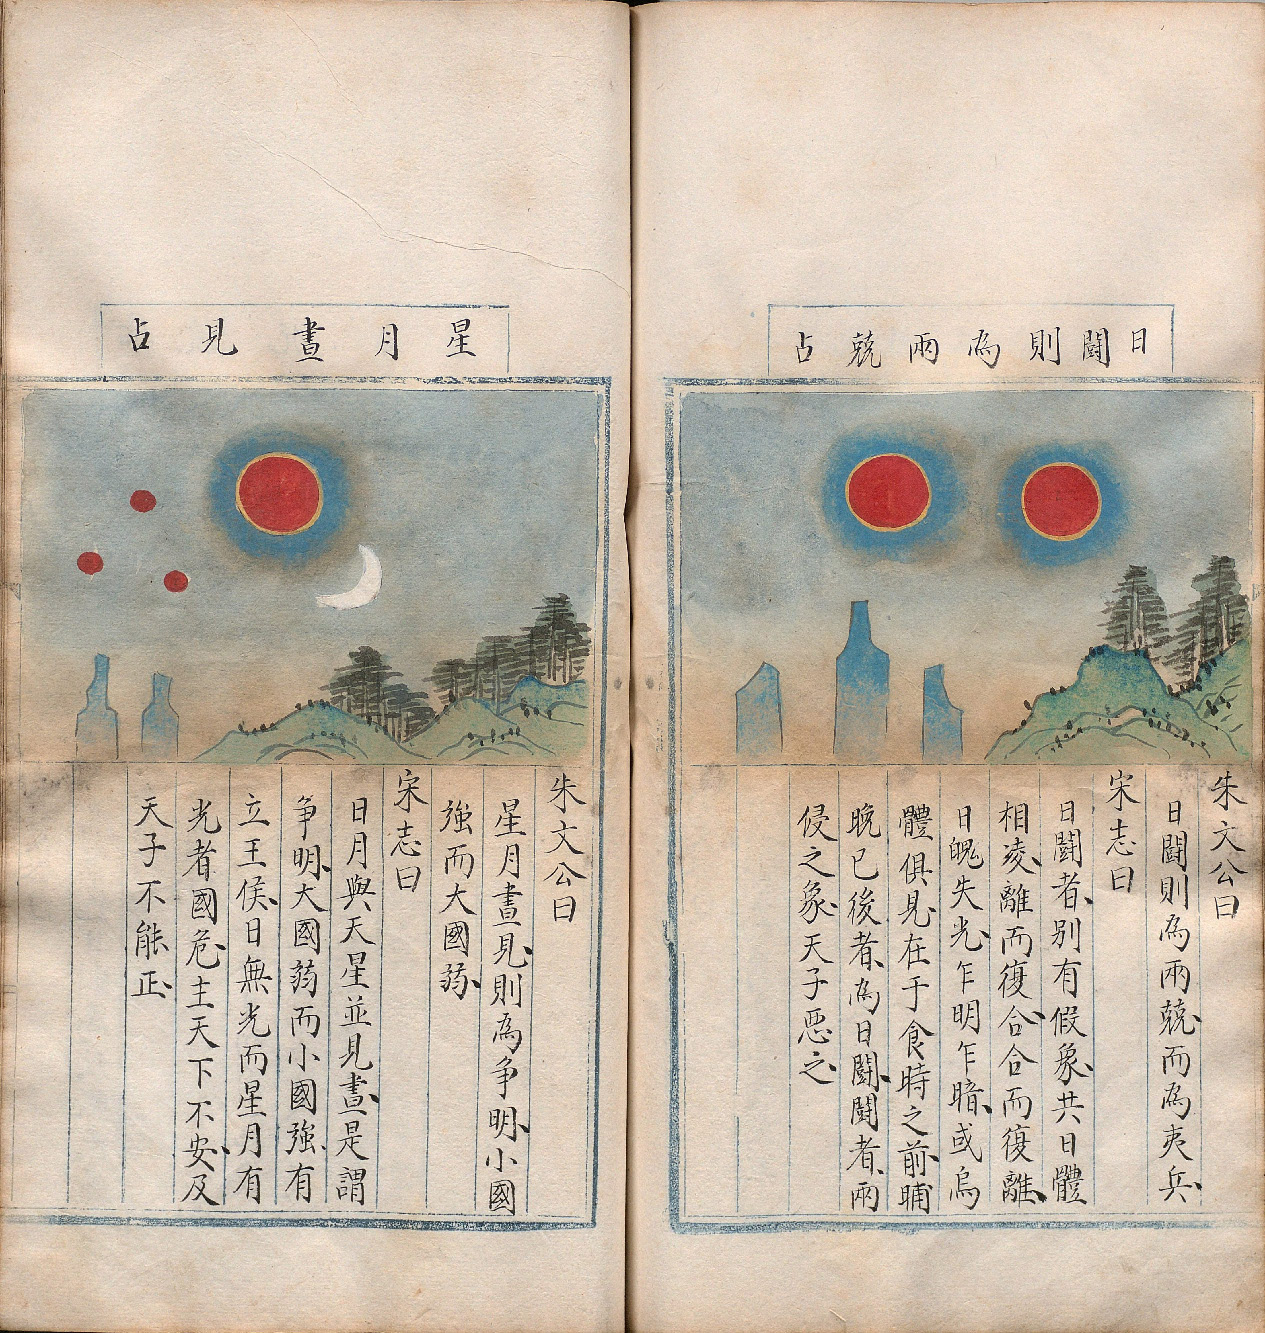 日鬪則為兩兢占
朱文公曰
日鬪則為兩兢而為夷兵
宋志曰
日鬪者别有假象共日體
相凌離而復合合而復離
日魄失光乍明乍暗或烏
體俱見在于食時之前晡
晚已後者為日鬪鬪者兩
侵之象天子惡之
星月晝見占
朱文公曰
星月晝見則為争明小國
強而大國蒻
宋志曰
日月與天星並見晝是謂
争明大國蒻而小國強有
立王侯日無光而星月有
光者國危主天下不安及
天子不能正